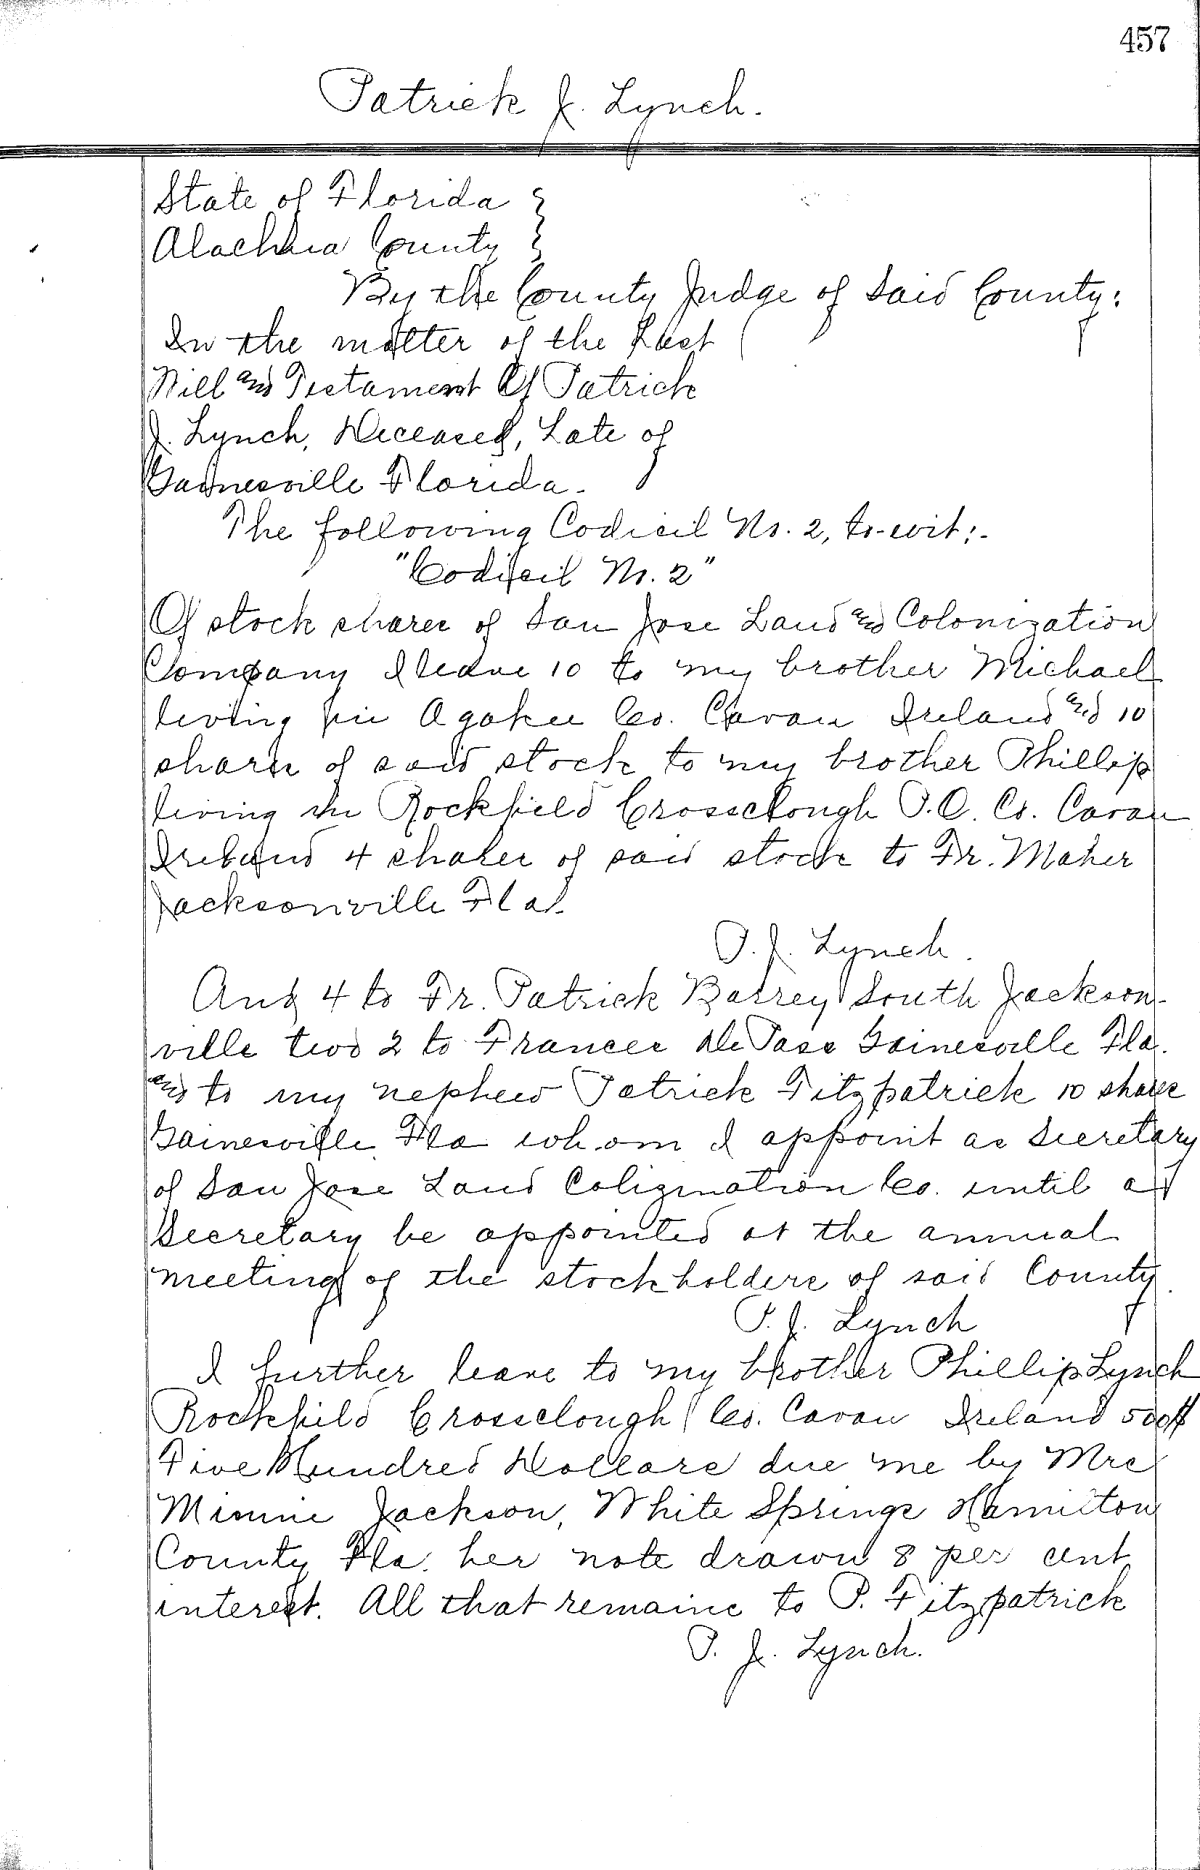 457
Patrick J. Lynch.
State of Florida
Alachua County
By the County Judge of Said County:
In the matter of the Last
Will and Testament Of Patrick
J. Lynch, Deceased, Late of
Gainesville Florida.
The following Codicil No. 2, to-wit:-
"Codicil No. 2"
Of stock shares of San Jose Land and Colonization
Company I leave 10 to my brother Michael
living in Co. Cavan Ireland and 10
shares of said stock to my brother Phillip
living in Rockfield Crossclough P.O. Co. Cavan
Ireland 4 shares of said stock to Fr. Maher
Jacksonville Fla.
P. J. Lynch.
And 4 to Fr. Patrick Barrey South Jackson-
ville two 2 to Frances De Pass Gainesville Fla.
and to my nephew Patrick Fitzpatrick 10 shares
Gainesville Fla whom I appoint as Secretary
of San Jose Land Co. until a
Secretary be appointed at the annual
meeting of the stockholders of said County
P. J. Lynch
I further leave to my brother Phillip Lynch
Rockfield Crossclough Co. Cavan Ireland 500$
Five Hundred Dollars due me by Mrs
Minnie Jackson, White Springs Hamilton
County Fla. her note drawn 8 per cent
interest. All that remains to P. Fitzpatrick
P. J. Lynch.